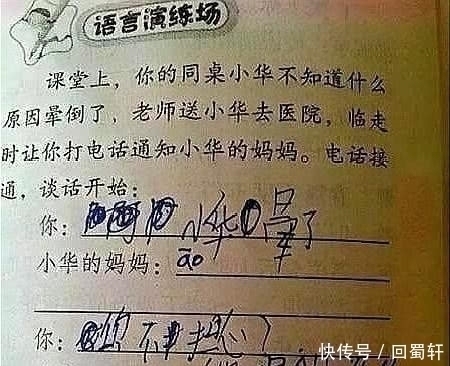 语言演练场
课堂上，你的同桌小华不知道什么
原因晕倒了，老师送小华去医院，临走
时让你打电话通知小华的妈妈。电话接
通，谈话开始：
你：小华晕了
小华的妈妈：āo
你：你不担心？
快传号 / 回蜀轩